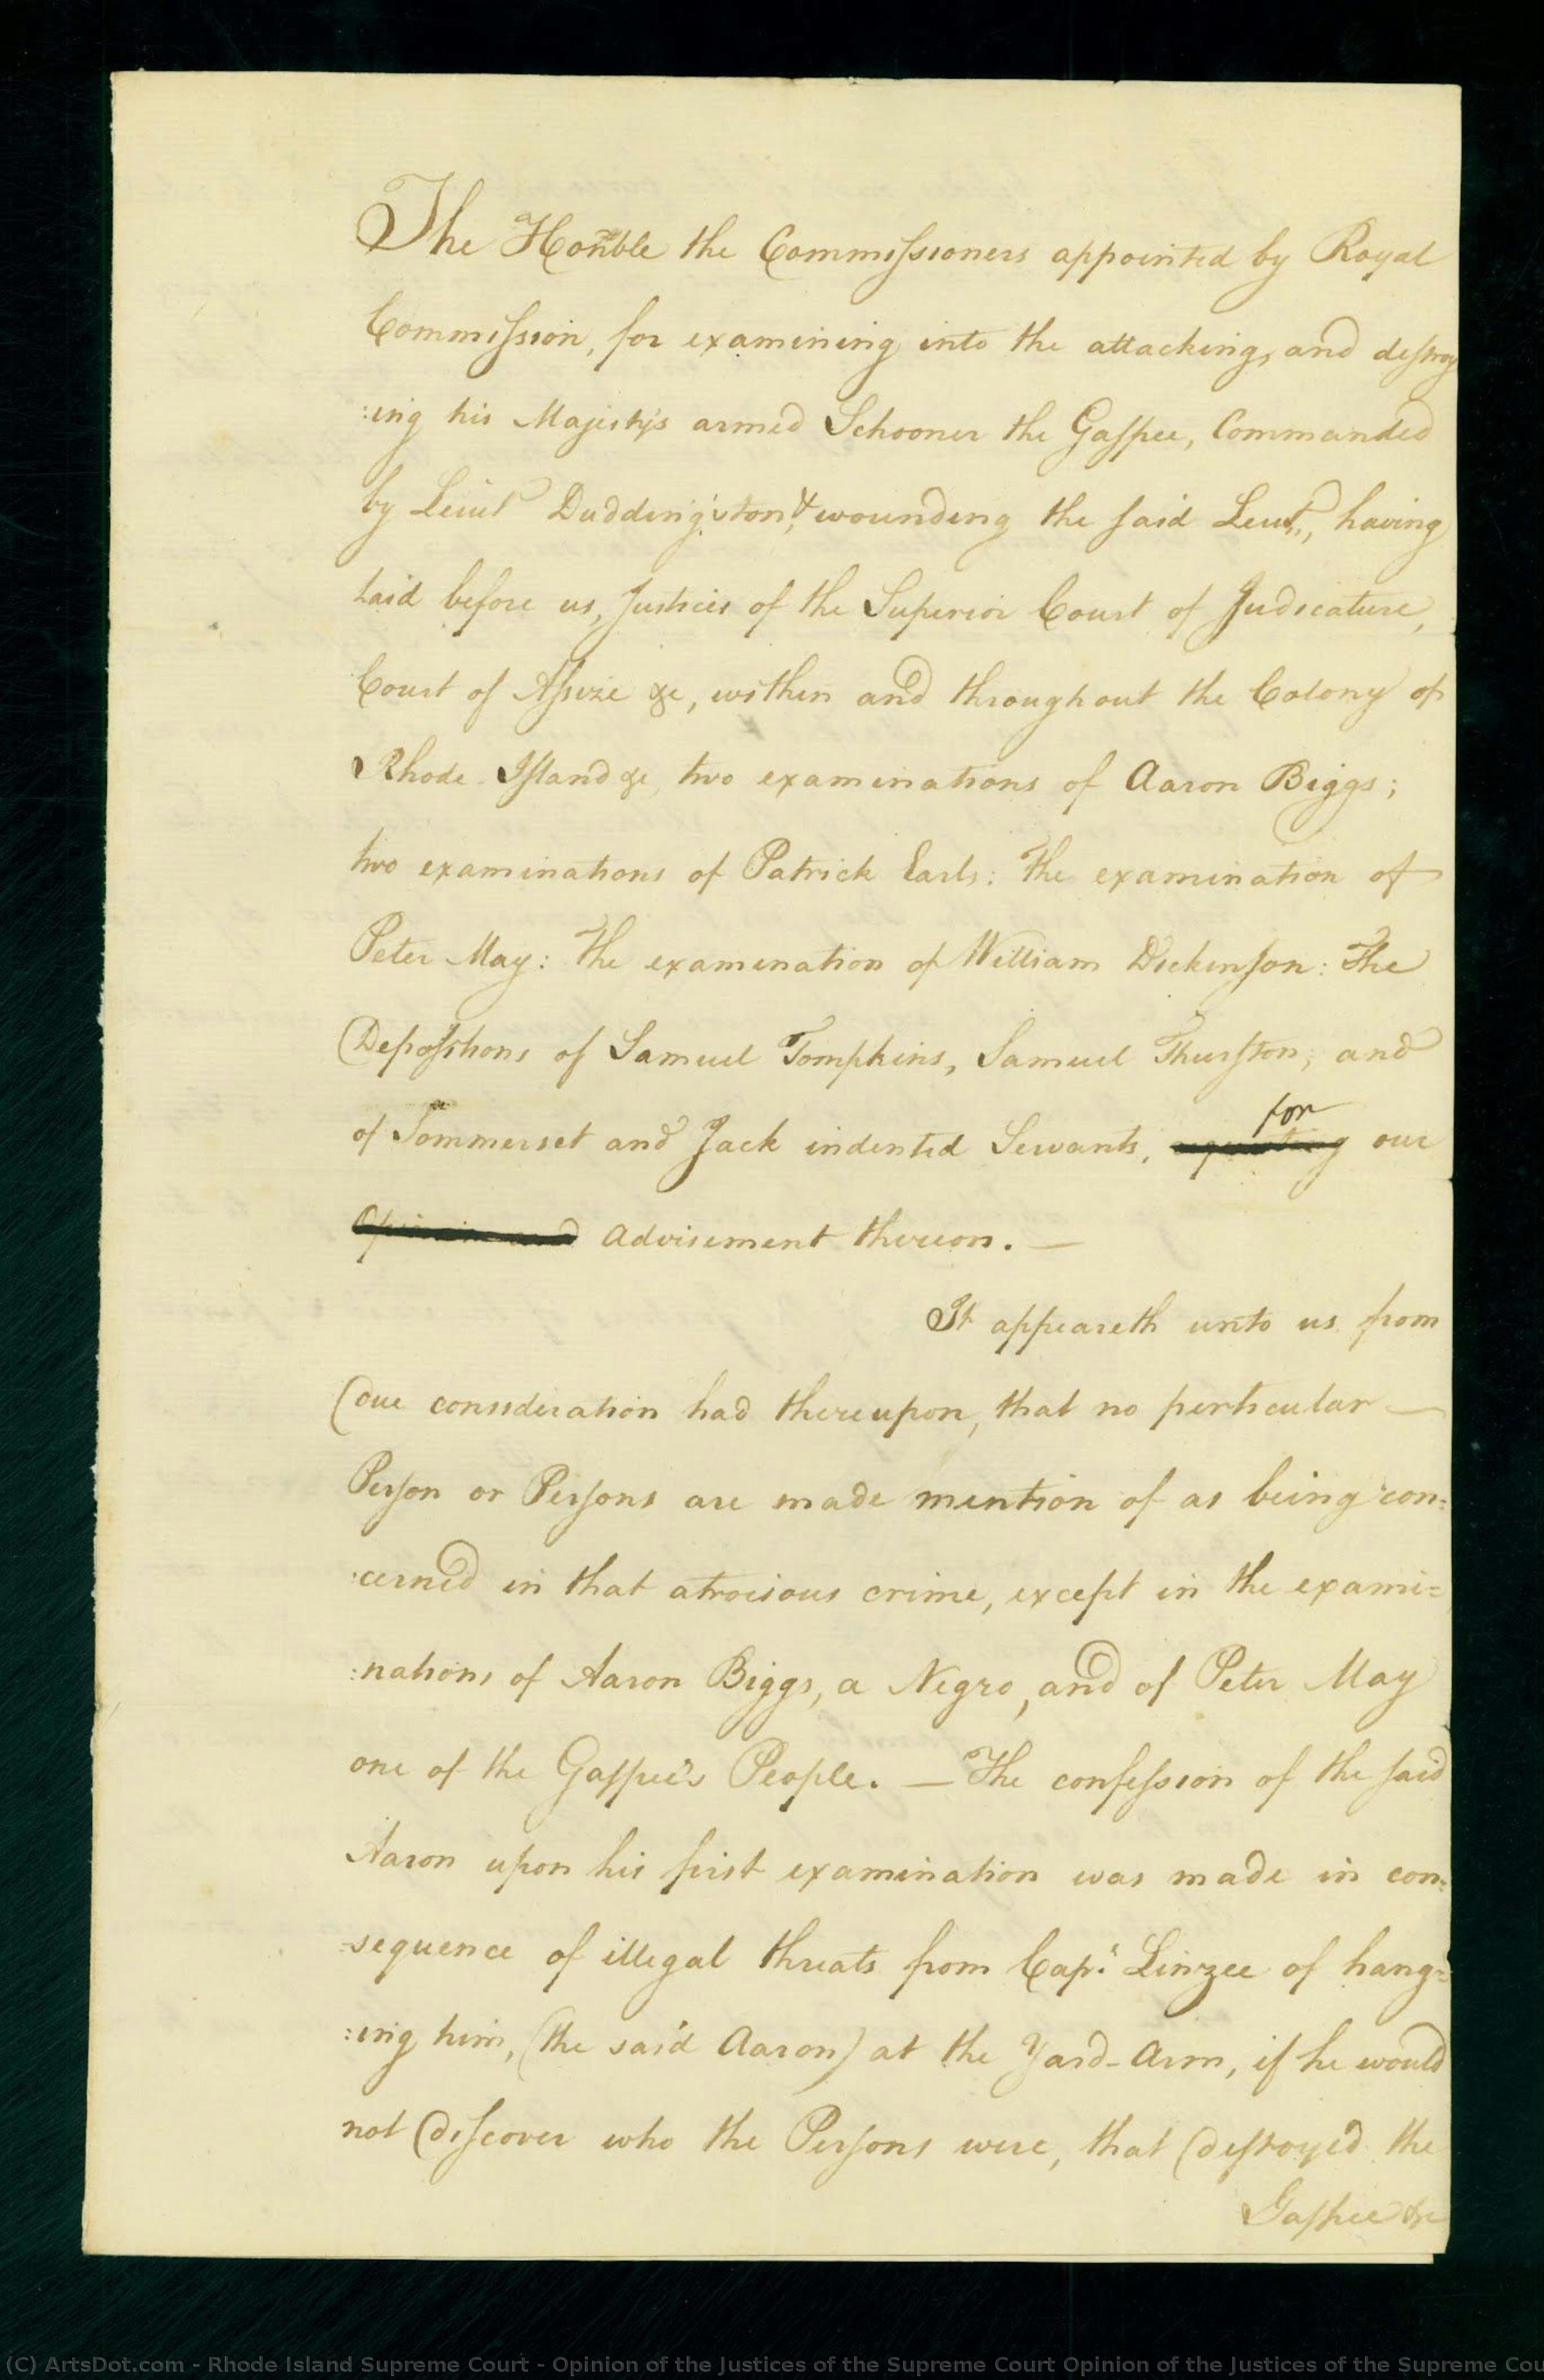 The Honble the Commissioners appointed by Royal
Commission, for examining into the attacking, and destroy
:ing his Majesty's armed Schooner the Gaspee, Commanded
by Leiut Duddingston, & wounding the said Leut, having
laid before us, Justices of the Superior Court of Judicature,
Court of Assize &c, within and throughout the Colony of
Rhode Island &c, two examinations of Aaron Biggs;
two examinations of Patrick Earls: The examination of
Peter May: The examination of William Dickinson: The
Depositions of Samuel Tompkins, Samuel Thurston, and
of Sommerset and Jack indented Servants, for our
Opinion and Advisement thereon. —
It appeareth unto us from
due consideration had thereupon, that no perticular —
Person or Persons are made mention of as being con=
:cerned in that atrocious crime, except in the exami=
:nations of Aaron Biggs, a Negro, and of Peter May
one of the Gaspee's People. — The confession of the said
Aaron upon his first examination was made in con=
=sequence of illegal threats from Capt. Linzee of hang=
:ing him, (the said Aaron) at the Yard-Arm, if he would
not discover who the Persons were, that destroyed the
Gaspee &c
(C) ArtsDot.com - Rhode Island Supreme Court - Opinion of the Justices of the Supreme Court Opinion of the Justices of the Supreme Cou